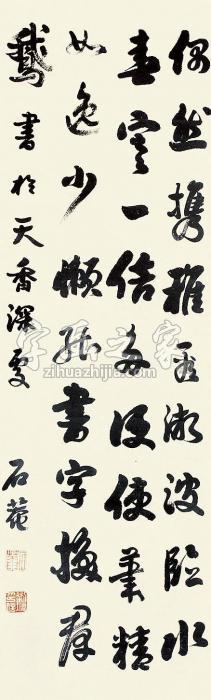 偶然携稚看微波臨水
春寒一倍多便使筆精
如逸少懶能書字換群
鵝書於天香深處
石菴
字画之家
zihuazhijia.com